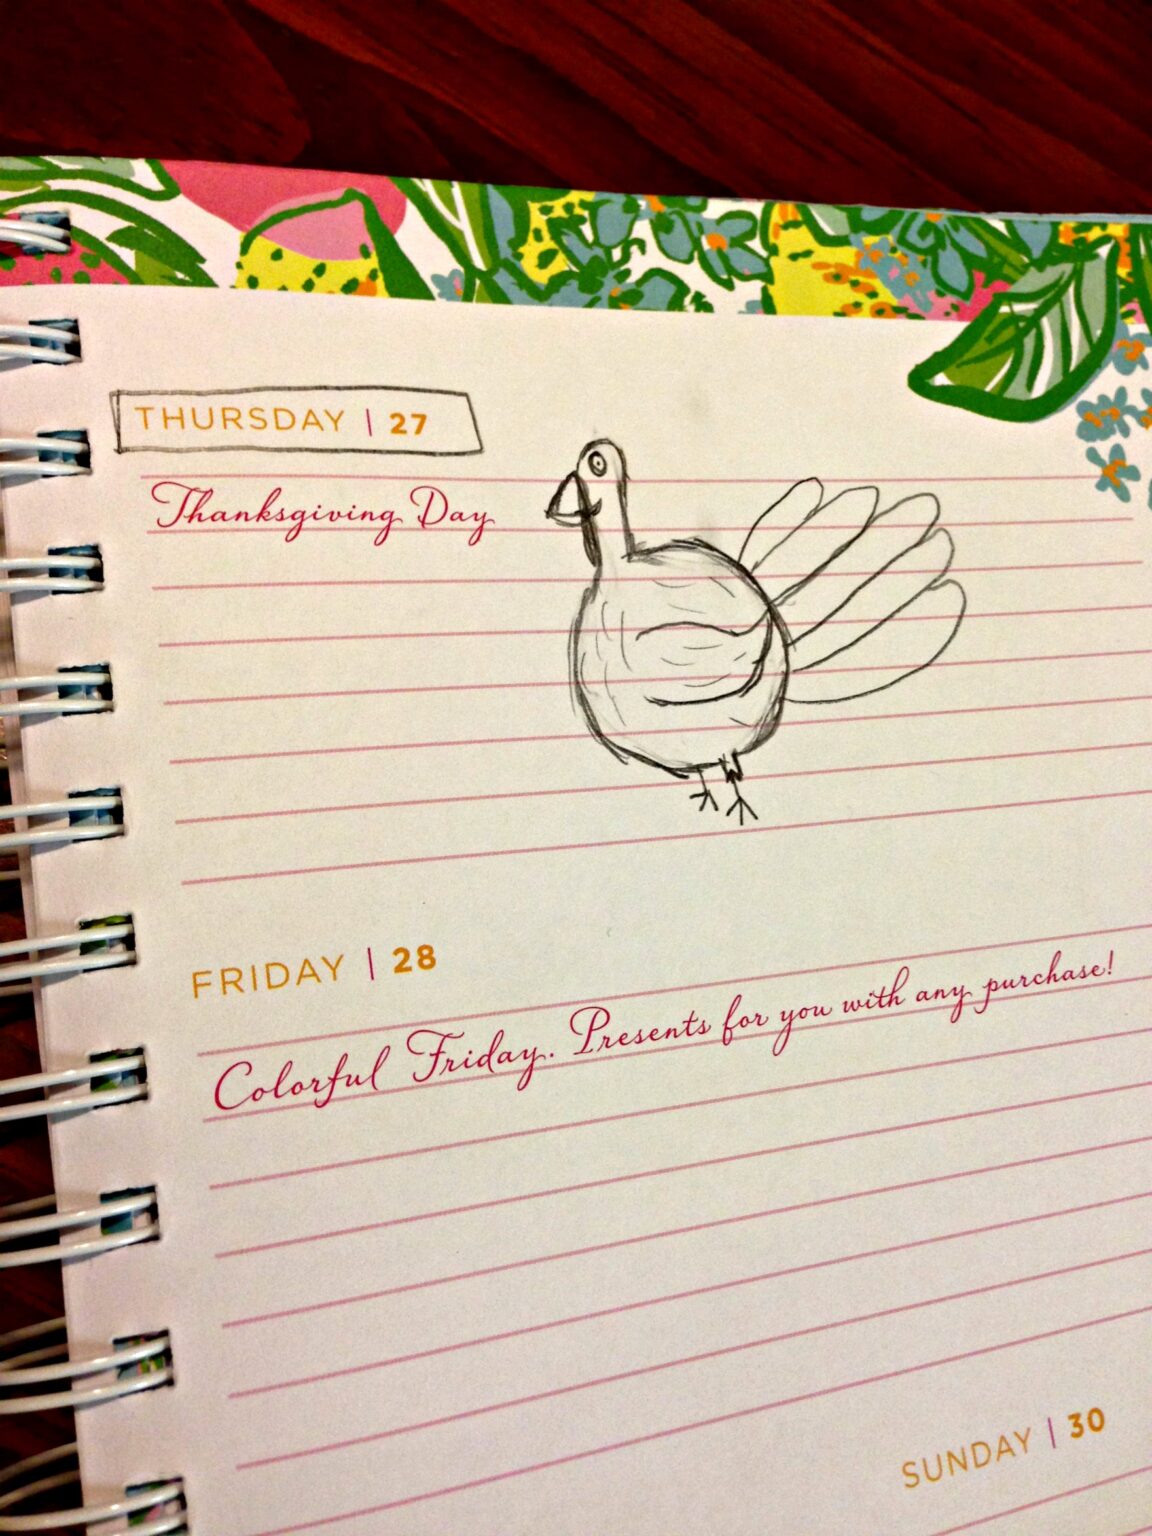 THURSDAY | 27
Thanksgiving Day
FRIDAY | 28
Colorful Friday. Presents for you with any purchase!
SUNDAY | 30